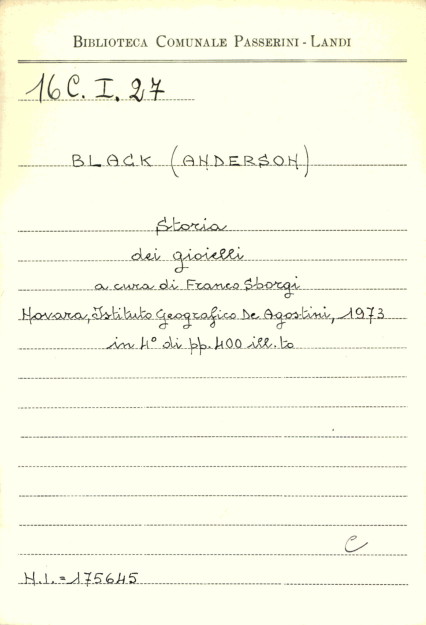 BIBLIOTECA COMUNALE PASSERINI - LANDI
16 C. I. 27
BLACK (ANDERSON)
Storia
dei gioielli
a cura di Franco Sborgi
Novara, Istituto Geografico De Agostini, 1973
in 4° di pp. 400 ill. to
C
N.I. = 175645